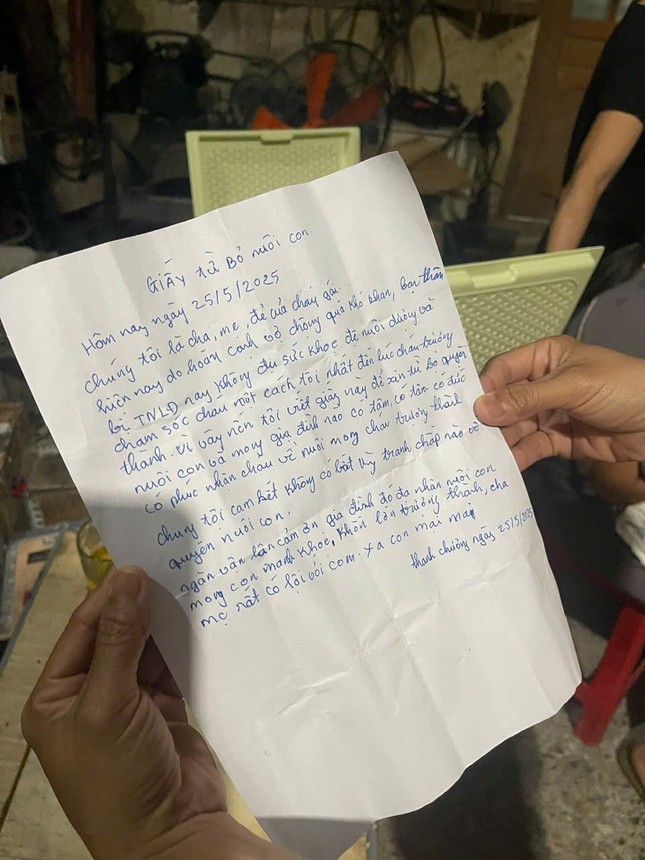 GIẤY từ Bỏ nuôi con
Hôm nay ngày 25/5/2025
chúng tôi là cha, mẹ, đẻ của cháu gái.
hiện nay do hoàn cảnh vợ chồng quá khó khăn, bạn thân
bị TNLĐ nay không đủ sức khỏe để nuôi dưỡng và
chăm sóc cháu một cách tối nhất đến lúc cháu trưởng
thành. vì vậy nên tôi viết giấy này để xin từ bỏ quyền
nuôi con và mong gia đình nào có tâm, có tâm có đức
có phúc nhận cháu về nuôi mong cháu trưởng thành
chúng tôi cam kết không có bất kỳ tranh chấp nào về
quyền nuôi con.
ngàn vân lần cảm ơn gia đình đó đã nhận nuôi con
mong con mạnh khỏe, khôn lớn trưởng thành, cha
mẹ rất có lội với con. xa con mãi mãi
thanh chương ngày 25/5/2025